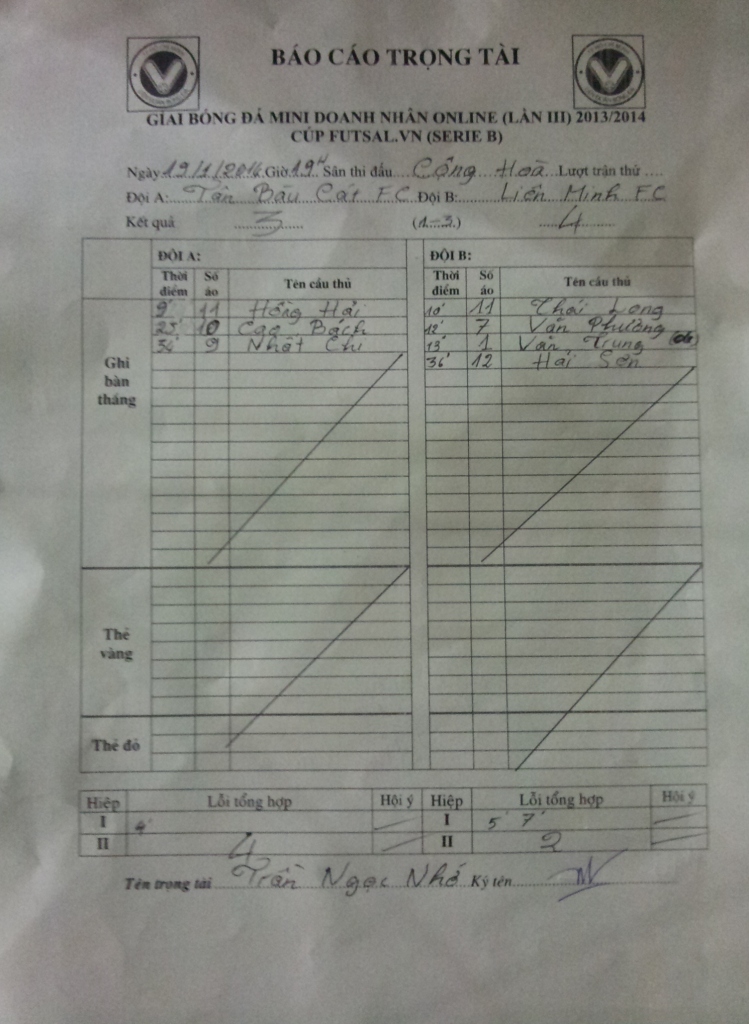 BÁO CÁO TRỌNG TÀI
GIẢI BÓNG ĐÁ MINI DOANH NHÂN ONLINE (LẦN III) 2013/2014
CÚP FUTSAL.VN (SERIE B)
Ngày 19/1/2014 Giờ 19H Sân thi đấu Cộng Hoà Lượt trận thứ ....
Đội A: Tân Bàu Cát FC Đội B: Liên Minh FC
Kết quả 3 (1-3) 4
ĐỘI A: ĐỘI B:
Thời điểm Số áo Tên cầu thủ Thời điểm Số áo Tên cầu thủ
Ghi bàn thắng
9' 11 Hồng Hải 10' 11 Thái Long
23' 10 Cao Bách 12' 7 Văn Phường
34' 9 Nhật Chi 13' 1 Văn Trung
36' 12 Hải Sơn
Thẻ vàng
Thẻ đỏ
Hiệp Lỗi tổng hợp Hội ý Hiệp Lỗi tổng hợp Hội ý
I I 5' 7'
II 4 II 2
Tên trọng tài Trần Ngọc Nhớ Ký tên